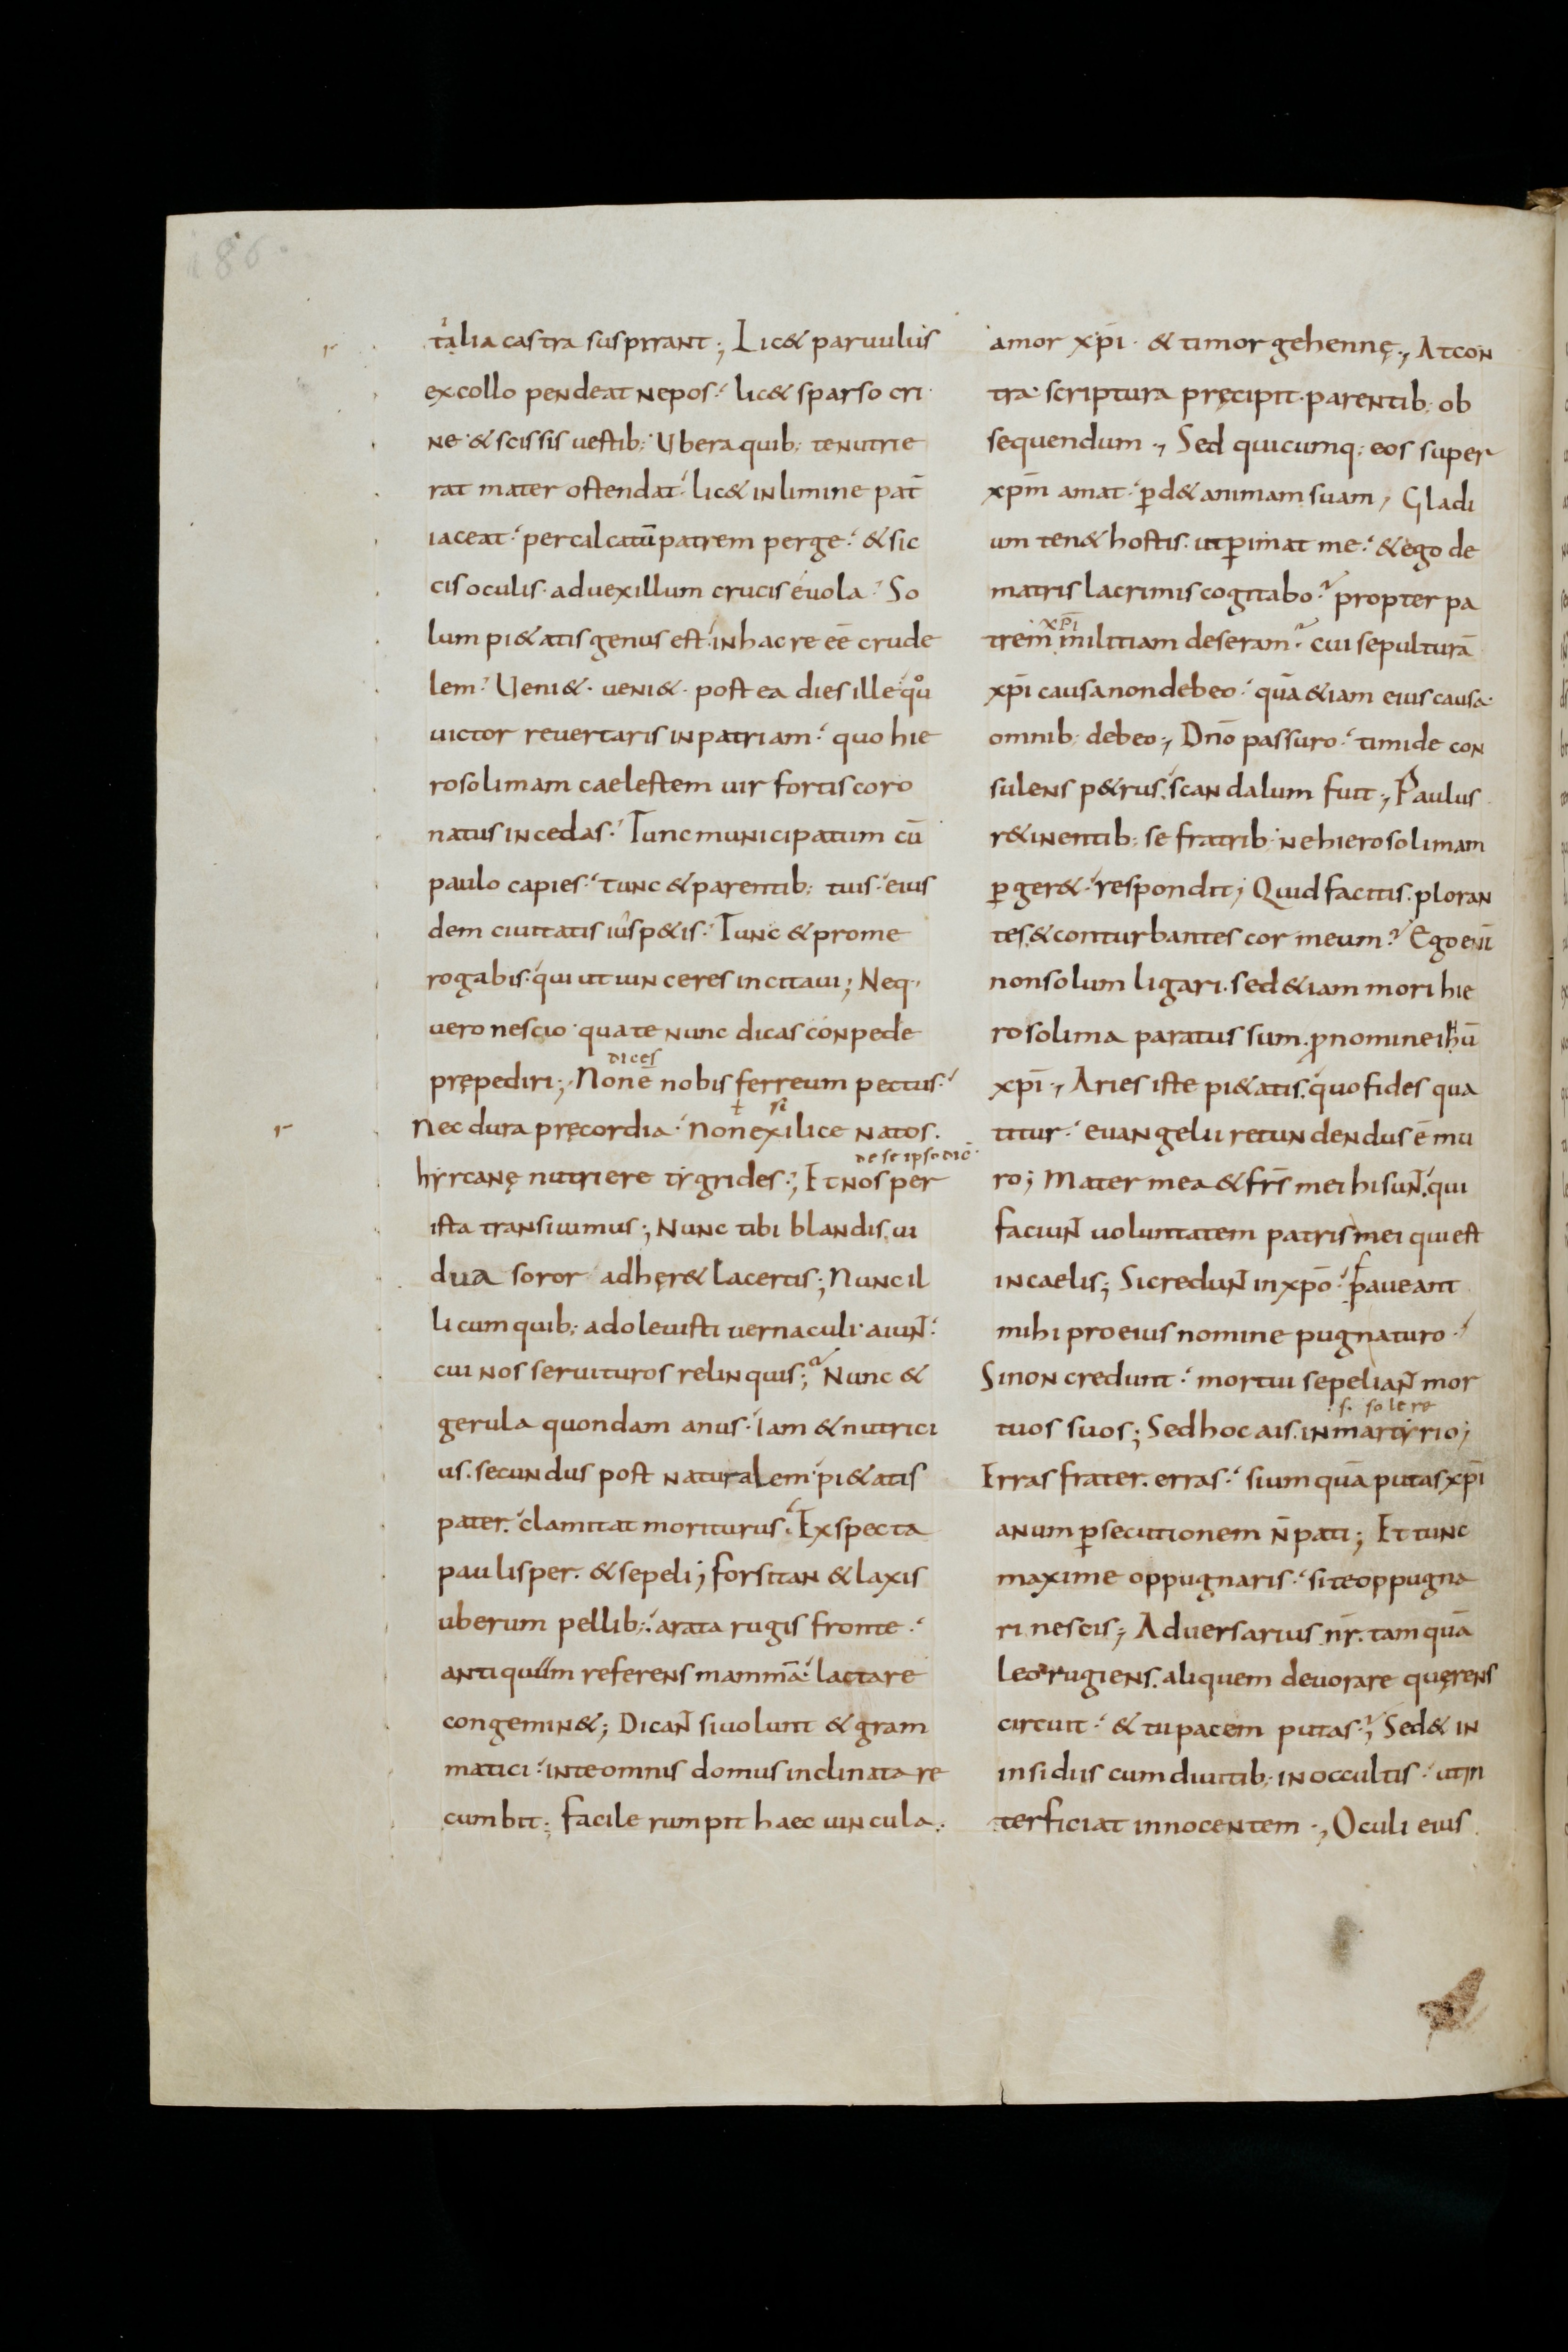 186.
talia castra suspirant; Lic& paruulus
ex collo pendeat nepos. lic& sparso cri
ne & scissis uestib; Ubera quib; te nutrie
rat mater ostendat. lic& in limine pat̄
iaceat. per calcatū patrem perge. & sic
cis oculis. ad uexillum crucis euola. So
lum pi&atis genus est. in hac re eē crude
lem. Ueni&. ueni&. post ea dies ille quo
uictor reuertaris in patriam. quo hie
rosolimam caelestem uir fortis coro
natus incedas. Tunc municipatum cū
paulo capies. tunc & parentib; tuis. eius
dem ciuitatis ius p&is. Tunc & pro me
rogabis. qui ut uinceres incitaui; Neq;
uero nescio. qua te nunc dicas conpede
dices
prępediri; Non ē nobis ferreum pectus.
nec dura pręcordia. non ex ilice natos.
de se ipso dic̄
hyrcanę nutriere tygrides; Et nos per
ista transiuimus; Nunc tibi blandis. ui
dua soror adhęr& lacertis; Nunc il
li cum quib; adoleuisti uernaculi. aiunt.
cui nos seruituros relinquis; Nunc &
gerula quondam anus. iam & nutrici
us. secundus post naturalem. pi&atis
pater. clamitat moriturus. Exspecta
paulisper. & sepeli; forsitan & laxis
uberum pellib; arata rugis fronte.
antiquum referens mammā. lactare
congemin&; Dicant si uolunt & gram
matici. in te omnis domus inclinata re
cumbit; facile rumpit haec uincula.
amor xp̄i. & timor gehennę; At con
tra scriptura pręcipit. parentib; ob
sequendum; Sed quicumq; eos super
xp̄m amat. ꝑd& animam suam; Gladi
um ten& hostis. ut ꝑimat me. & ego de
matris lacrimis cogitabo? propter pa
xp̄i
trem militiam deseram? cui sepulturā
xp̄i causa non debeo. quā &iam eius causa.
omnib; debeo; Dn̄o passuro. timide con
sulens p&rus. scandalum fuit; Paulus
r&inentib; se fratrib. ne hierosolimam
ꝑger&. respondit; Quid facitis. ploran
tes. & conturbantes cor meum? Ego eni̅
non solum ligari. sed &iam mori hie
rosolima paratus sum. ꝓ nomine ihū
xp̄i; Aries iste pi&atis. quo fides qua
titur. euangelii retundendus ē mu
ro; Mater mea & fr̄s mei hi sunt. qui
faciunt uoluntatem patris mei qui est
in caelis; Si credunt in xp̄o. faueant
mihi pro eius nomine pugnaturo.
Si non credunt. mortui sepeliant mor
s. solere
tuos suos; Sed hoc ais. in martyrio;
Erras frater. erras. si umquā putas xp̄i
anum ꝑsecutionem n̄ pati; Et tunc
maxime oppugnaris. si te oppugna
ri nescis; Aduersarius nr̄. tamquā
leo rugiens. aliquem deuorare quęrens
circuit. & tu pacem putas? Sed& in
insidiis cum diuitib; in occultis. ut in
terficiat innocentem; Oculi eius